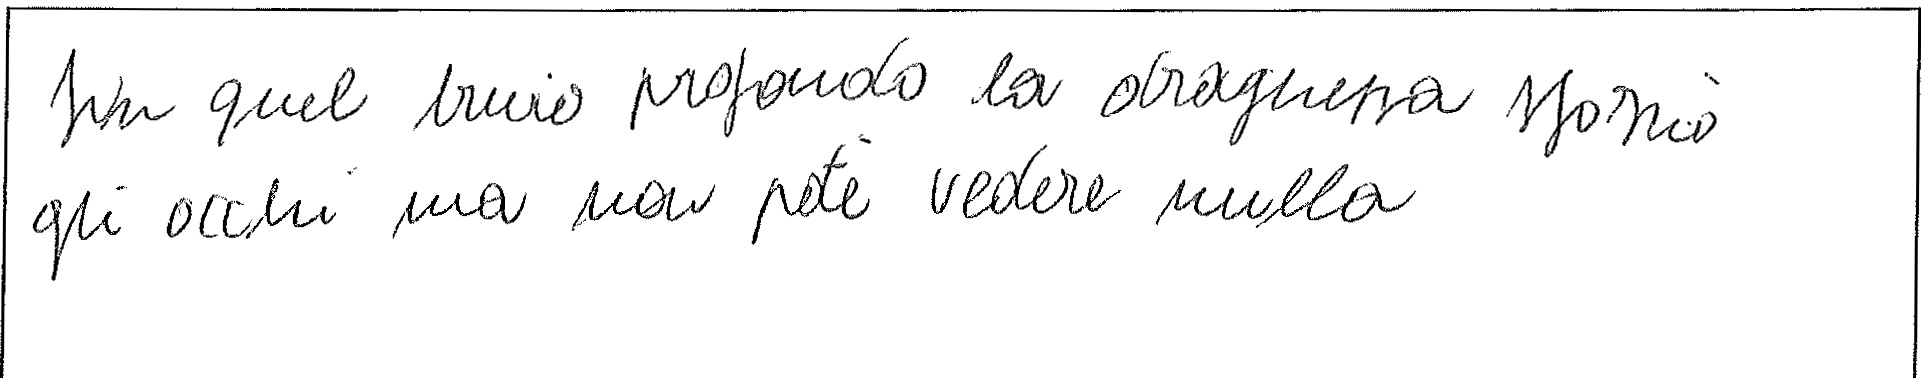 In quel buio profondo la sforzò
gli occhi ma non potè vedere nulla